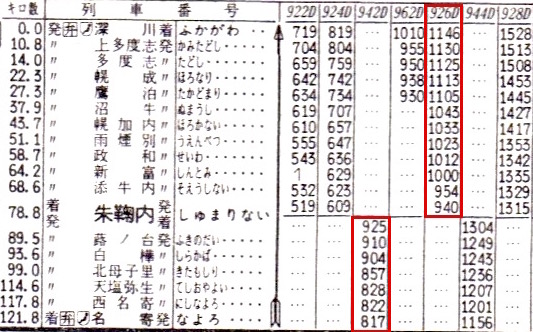 キロ数 列車番号 922D 924D 942D 962D 926D 944D 928D
0.0 発弁 深川着 ふかがわ・・ 719 819 … 1010 1146 … 1528
10.8 〃 上多度志発 かみたどし・ 704 804 … 955 1130 … 1513
14.0 〃 多度志〃 たどし・・・・ 659 759 … 950 1125 … 1508
22.3 〃 幌成〃 ほろなり・・・ 642 742 … 938 1113 … 1453
27.3 〃 鷹泊〃 たかどまり・・ 634 734 … 930 1105 … 1445
37.9 〃 沼牛〃 ぬまうし・・・ 619 707 … … 1043 … 1427
43.7 〃 幌加内〃 ほろかない・・ 610 657 … … 1033 … 1417
51.1 〃 雨煙別〃 うえんべつ・・ 555 647 … … 1023 … 1353
58.7 〃 政和〃 せいわ・・・・ 543 636 … … 1012 … 1342
64.2 〃 新富〃 しんとみ・・・ 1 629 … … 1000 … 1335
68.6 〃 添牛内〃 そえうしない・ 532 623 … … 954 … 1329
78.8 着発 朱鞠内 発着 しゅまりない 519 609 … … 940 … 1315
… … 925 … … 1304 …
89.5 〃 蕗ノ台発 ふきのだい・・ … … 910 … … 1249 …
93.6 〃 白樺〃 しらかば・・・ … … 904 … … 1243 …
99.0 〃 北母子里〃 きたもしり・・ … … 857 … … 1236 …
114.6 〃 天塩弥生〃 てしおやよい・ … … 828 … … 1207 …
117.8 〃 西名寄〃 にしなよろ・・ … … 822 … … 1201 …
121.8 着弁 名寄発 なよろ・・・・ … … 817 … … 1156 …